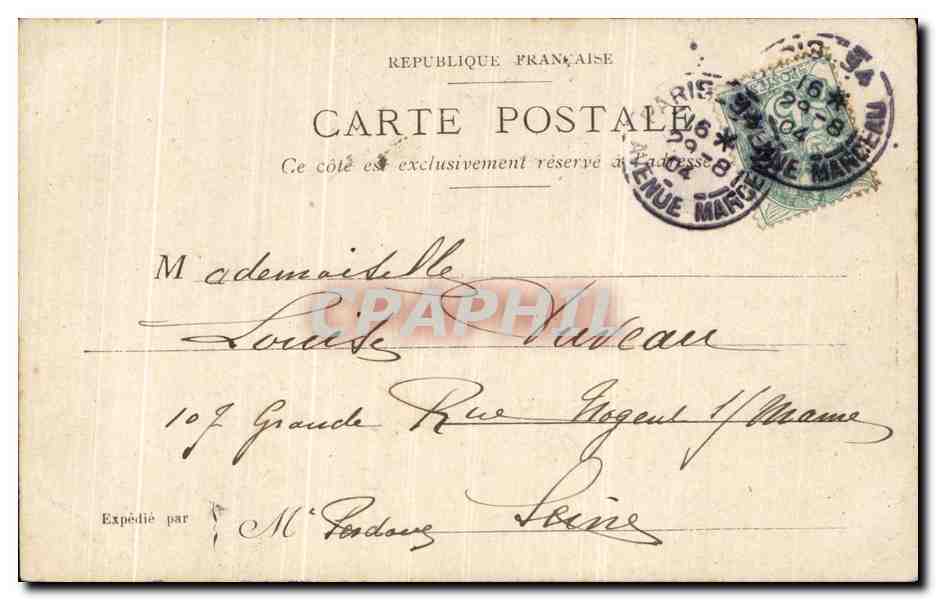 REPUBLIQUE FRANÇAISE
CARTE POSTALE
Ce côté est exclusivement réservé à l'adresse
PARIS
16 *
29 - 8
04
AVENUE MARCE
34
16 *
29 - 8
04
AVENUE MARCEAU
Mademoiselle
Louise
CPAPHIL
107 Grande Rue Nogent s/ Marne
Seine
Expédié par Mr